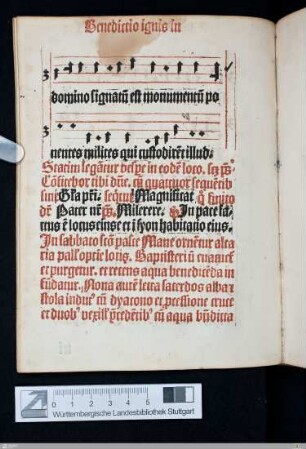 Benedictio ignis in
domino signatū est monumentū po
nentes milites qui custodirēt illud.
Statim legātur vespe in eodē loco.
Cōfitebor tibi dñe. cū quatuor sequētib
Magnificat
Pater nr̄ Miserere. In pace fa
ctus ē locus eius et ī syon habitatio eius.
In sabbato sctō pasce Mane ornētur alta
ria Baptisteriū euacuet
et purgetur. et recens aqua benedicēda in
fundatur. Nona autē leta sacerdos alba
stola indut cū dyacono et, pcessione cruce
et duob vexill p̄cedētib cū aqua bn̄dicta
0 1 2 3 4 5
Württembergische Landesbibliothek Stuttgart